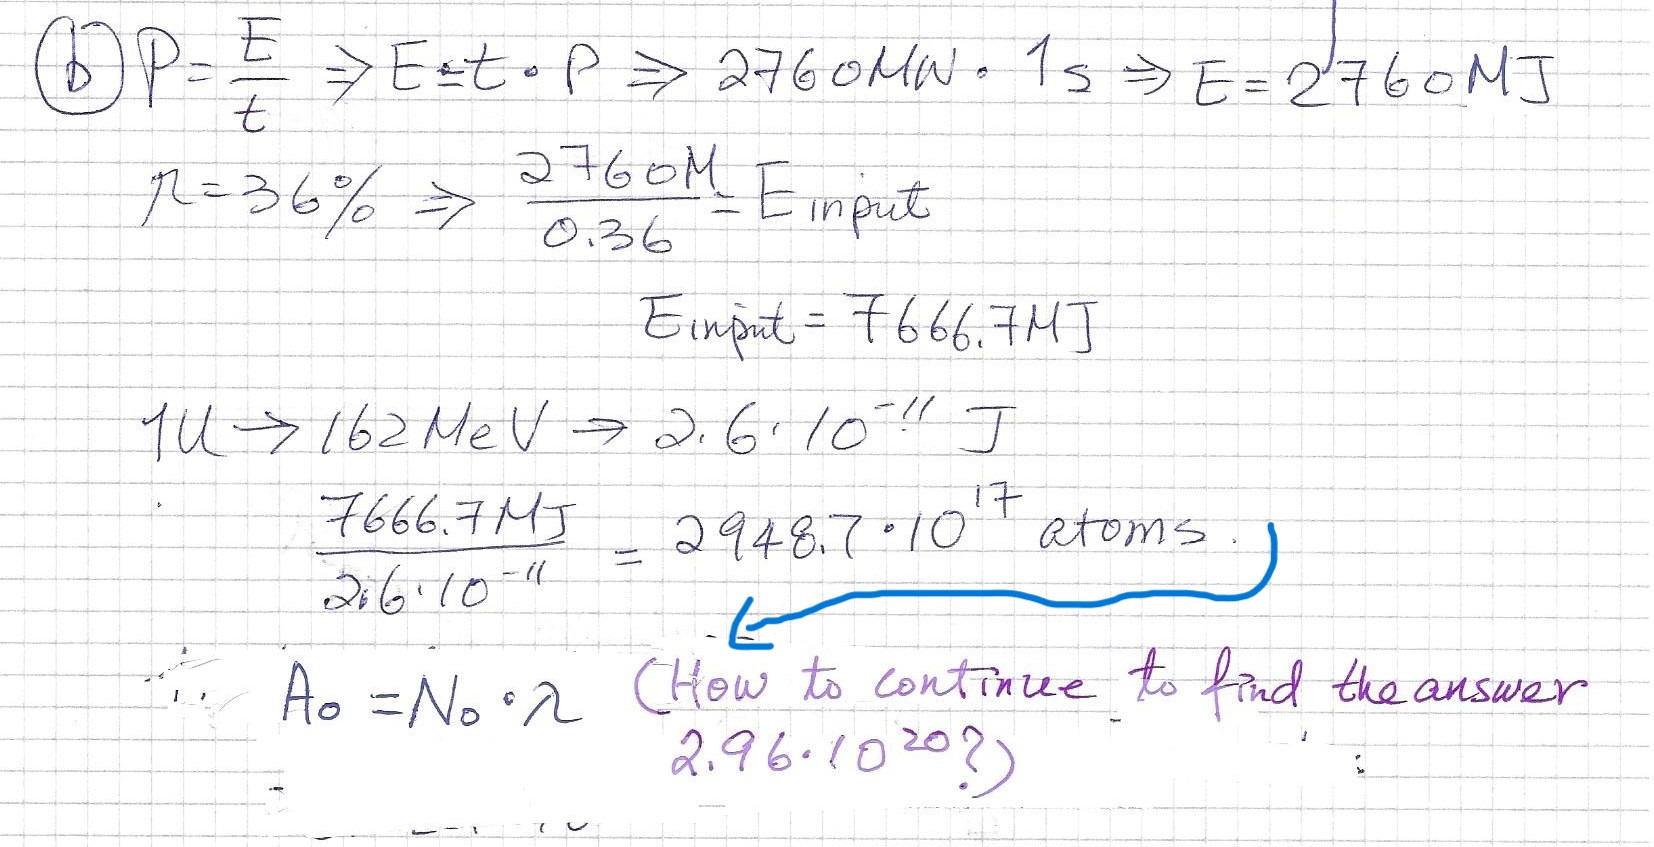 (b) P = E/t ⇒ E = t · P ⇒ 2760MW · 1s ⇒ E = 2760MJ
η = 36% ⇒ 2760M/0.36 = E input
E input = 7666.7MJ
1U → 162 MeV → 2.6 · 10⁻¹¹ J
7666.7 MJ / 2.6 · 10⁻¹¹ = 2948.7 · 10¹⁷ atoms.
A₀ = N₀ · λ (How to continue to find the answer
2.96 · 10²⁰?)